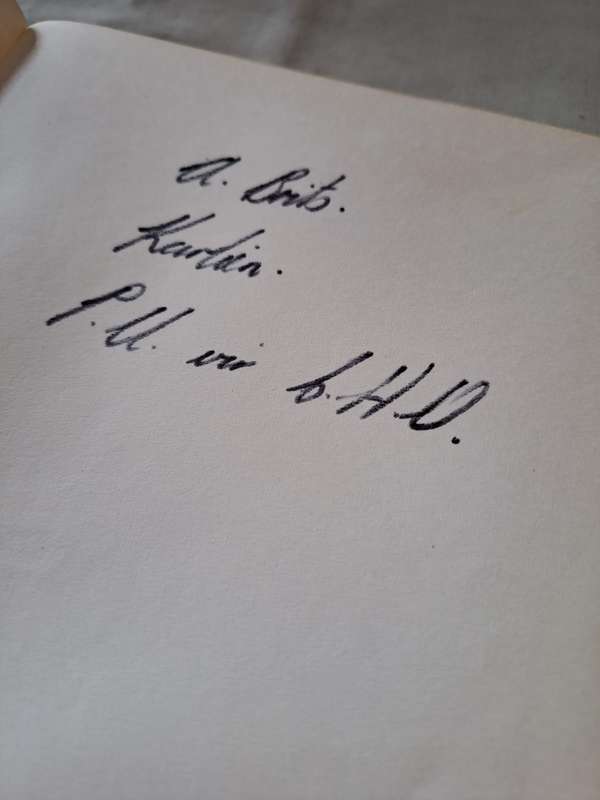 A. Brits.
Karlien.
P.U. vir C.H.O.